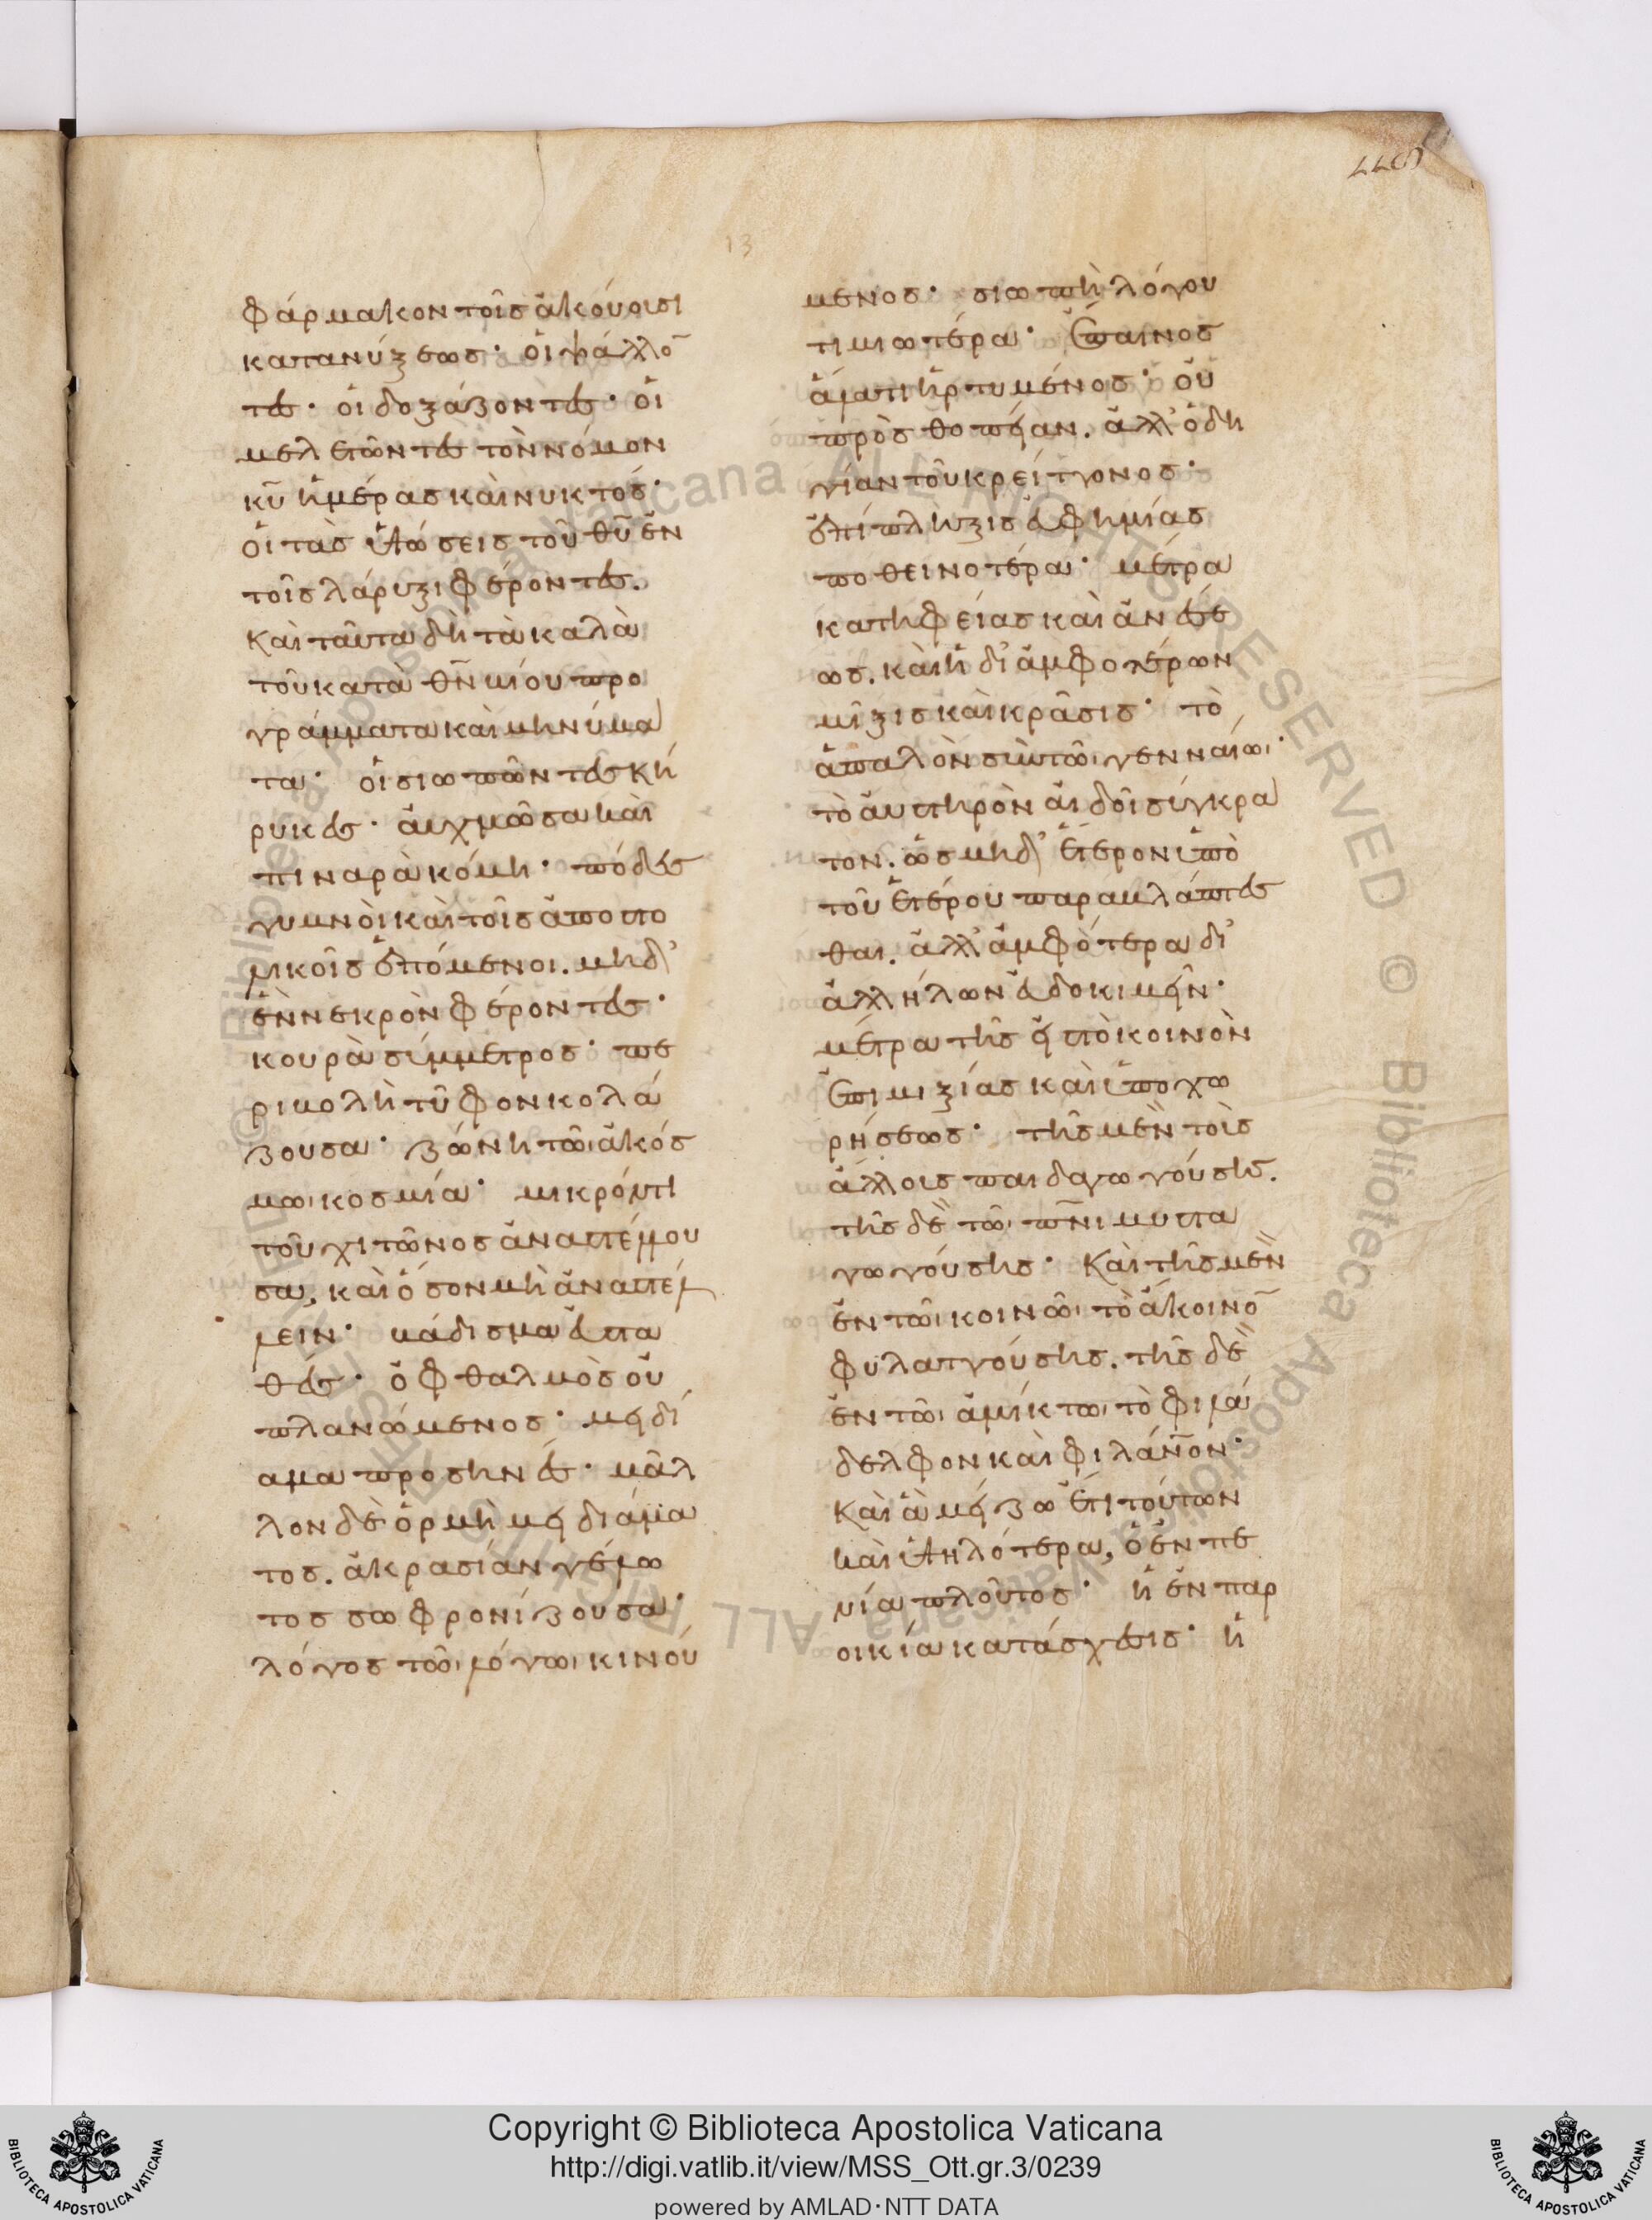 13
φάρμακον τοῖσ ἀκούουσι
κατανύξεωσ· οἱ ψάλλο̄
τεσ· οἱ δοξάζοντεσ· οἱ
μελετῶντεσ τὸν νόμον
κ̅υ̅ ἡμέρασ καὶ νυκτόσ·
οἱ τὰσ ὑψώσεισ τοῦ θ̅υ̅ ἐν
τοῖσ λάρυξι φέροντεσ.
Καὶ ταῦτα δὴ τὰ καλὰ
τοῦ κατὰ θ̅ν̅ βίου προ
γράμματα καὶ μηνύμα
τα· οἱ σιωπῶντεσ κή
ρυκεσ· αὐχμῶσα καὶ
πιναρὰ κόμη· πόδεσ
γυμνοὶ καὶ τοῖσ ἀποστο
λικοῖσ ἑπόμενοι. μηδ'
ἓν νεκρὸν φέροντεσ·
κουρὰ σύμμετροσ· πε
ριβολὴ τῦφον κολά
ζουσα· ζώνη τῶι ἀκόσ
μωι κοσμία· μικρόν τι
τοῦ χιτῶνοσ ἀναστέλλου
σα, καὶ ὅσον μὴ ἀναστέλ
λειν· βάδισμα εὐστα
θέσ· ὀφθαλμὸσ οὐ
πλανώμενοσ· μειδί
αμα προσηνέσ· μᾶλ
λον δὲ ὁρμὴ μειδιάμα
τοσ. ἀκρασίαν γέλω
τοσ σωφρονίζουσα·
λόγοσ τῶι λόγωι κινού
μενοσ· σιωπὴ λόγου
τιμιωτέρα· ἔπαινοσ
ἅλατι ἠρτυμένοσ· οὐ
πρὸσ θωπείαν. ἀλλ' ὁδη
γίαν τοῦ κρείττονοσ·
ἐπίπληξισ εὐφημίασ
ποθεινοτέρα· μέτρα
κατηφείασ καὶ ἀνέσε
ωσ. καὶ ἡ δι' ἀμφοτέρων
μῖξισ καὶ κρᾶσισ· τὸ
ἁπαλὸν σὺν τῶι γενναίωι·
τὸ αὐστηρὸν αἰδοῖ σύγκρα
τον. ὡσ μηδ' ἕτερον ὑπὸ
τοῦ ἑτέρου παραβλάπτεσ
θαι. ἀλλ' ἀμφότερα δι'
ἀλλήλων εὐδοκιμεῖν·
μέτρα τῆσ εἰσ τὸ κοινὸν
ἐπιμιξίασ καὶ ὑποχω
ρήσεωσ· τῆσ μὲν τοὺσ
ἄλλουσ παιδαγωγούσησ.
τῆσ δὲ τῶι π̅ν̅ι μυστα
γωγούσησ· Καὶ τῆσ μὲν
ἐν τῶι κοινῶι τὸ ἄκοινο̄
φυλαττούσησ. τῆσ δὲ
ἐν τῶι ἀμίκτωι τὸ φιλά
δελφον καὶ φιλάν̅ον·
Καὶ ἃ μείζω ἔτι τούτων
καὶ ὑψηλότερα, ὁ ἐν πε
νία πλοῦτοσ· ἡ ἐν παρ
οικία κατάσχεσισ· ἡ
Copyright © Biblioteca Apostolica Vaticana
http://digi.vatlib.it/view/MSS_Ott.gr.3/0239
powered by AMLAD·NTT DATA
BIBLIOTECA APOSTOLICA VATICANA
BIBLIOTECA APOSTOLICA VATICANA